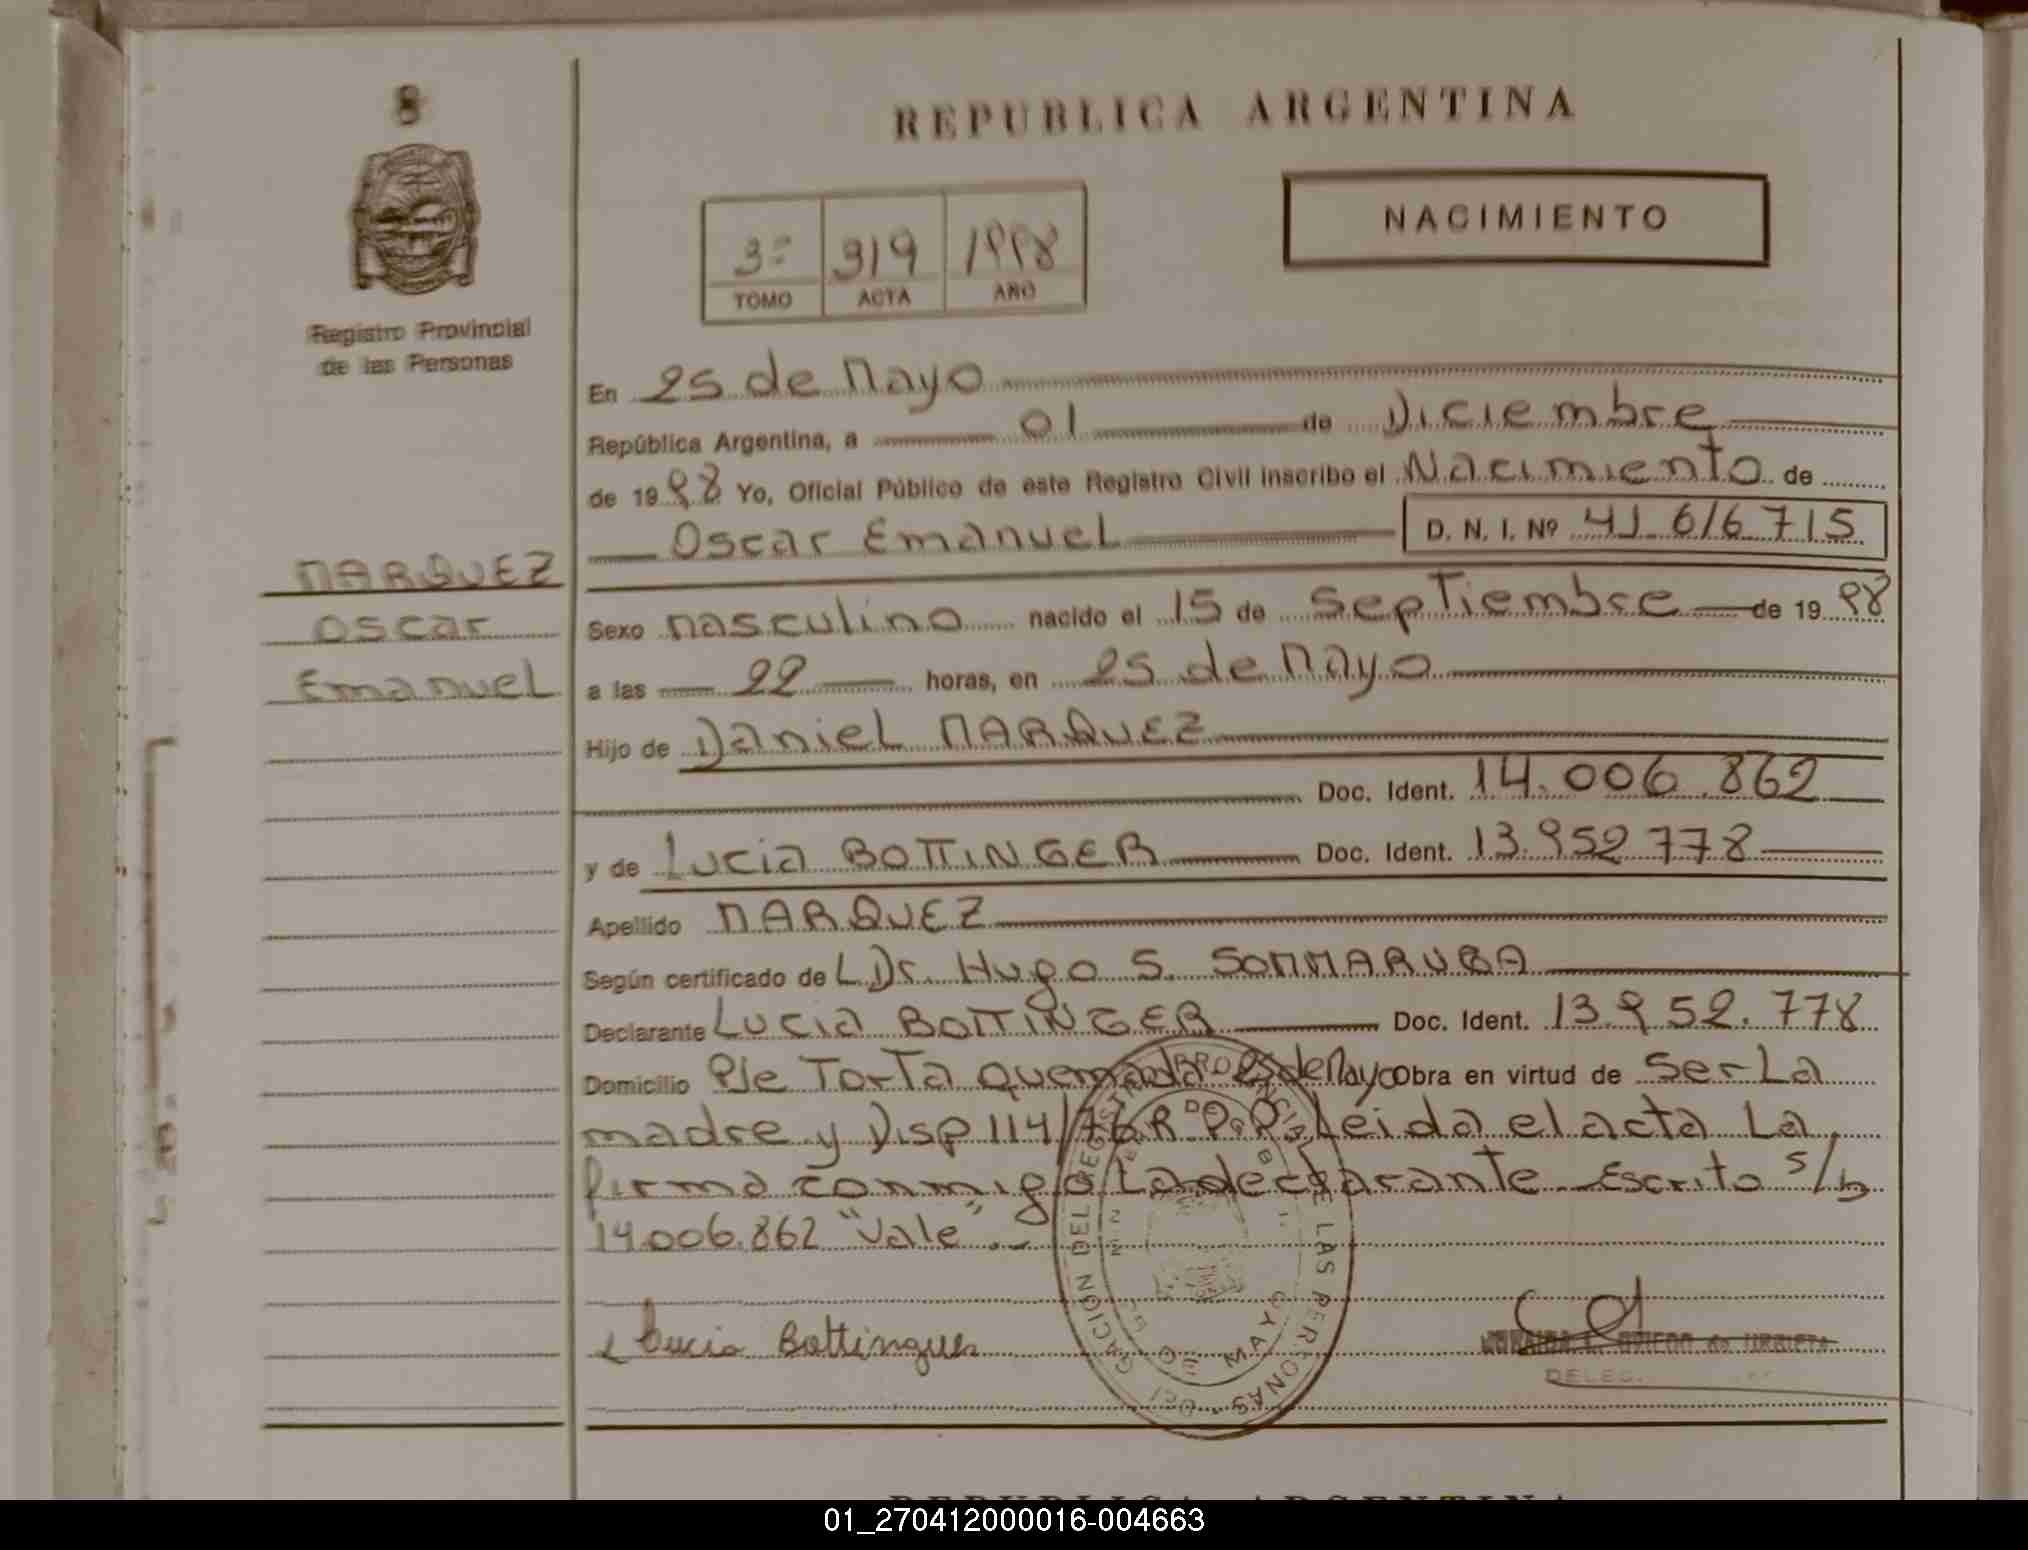 8
Registro Provincial
de las Personas
REPUBLICA ARGENTINA
NACIMIENTO
3º 319 1998
TOMO ACTA AÑO
En 25 de Mayo
República Argentina, a 01 de Diciembre
de 1998 Yo, Oficial Público de este Registro Civil inscribo el Nacimiento de
Oscar Emanuel D. N. I. Nº 41 616 715
MARQUEZ
Oscar
Emanuel
Sexo Masculino nacido el 15 de Septiembre de 1998
a las 22 horas, en 25 de Mayo
Hijo de Daniel MARQUEZ
Doc. Ident. 14.006.862
y de Lucia BOTTINGER Doc. Ident. 13.952.778
Apellido MARQUEZ
Según certificado de L Dr. Hugo S. SOMMARUGA
Declarante Lucia BOTTINGER Doc. Ident. 13.952.778
Domicilio Pje Torta Quemada 25 de Mayo Obra en virtud de Ser La
madre y Disp 114/76 R.P.P. Leida el acta La
firma conmigo La declarante Escrito s/b
14.006.862 "Vale".-
Lucia Bottinguer
DELEG.
DELEGACION DEL REGISTRO PROVINCIAL DE LAS PERSONAS
25 DE MAYO
REPUBLICA ARGENTINA
01_270412000016-004663